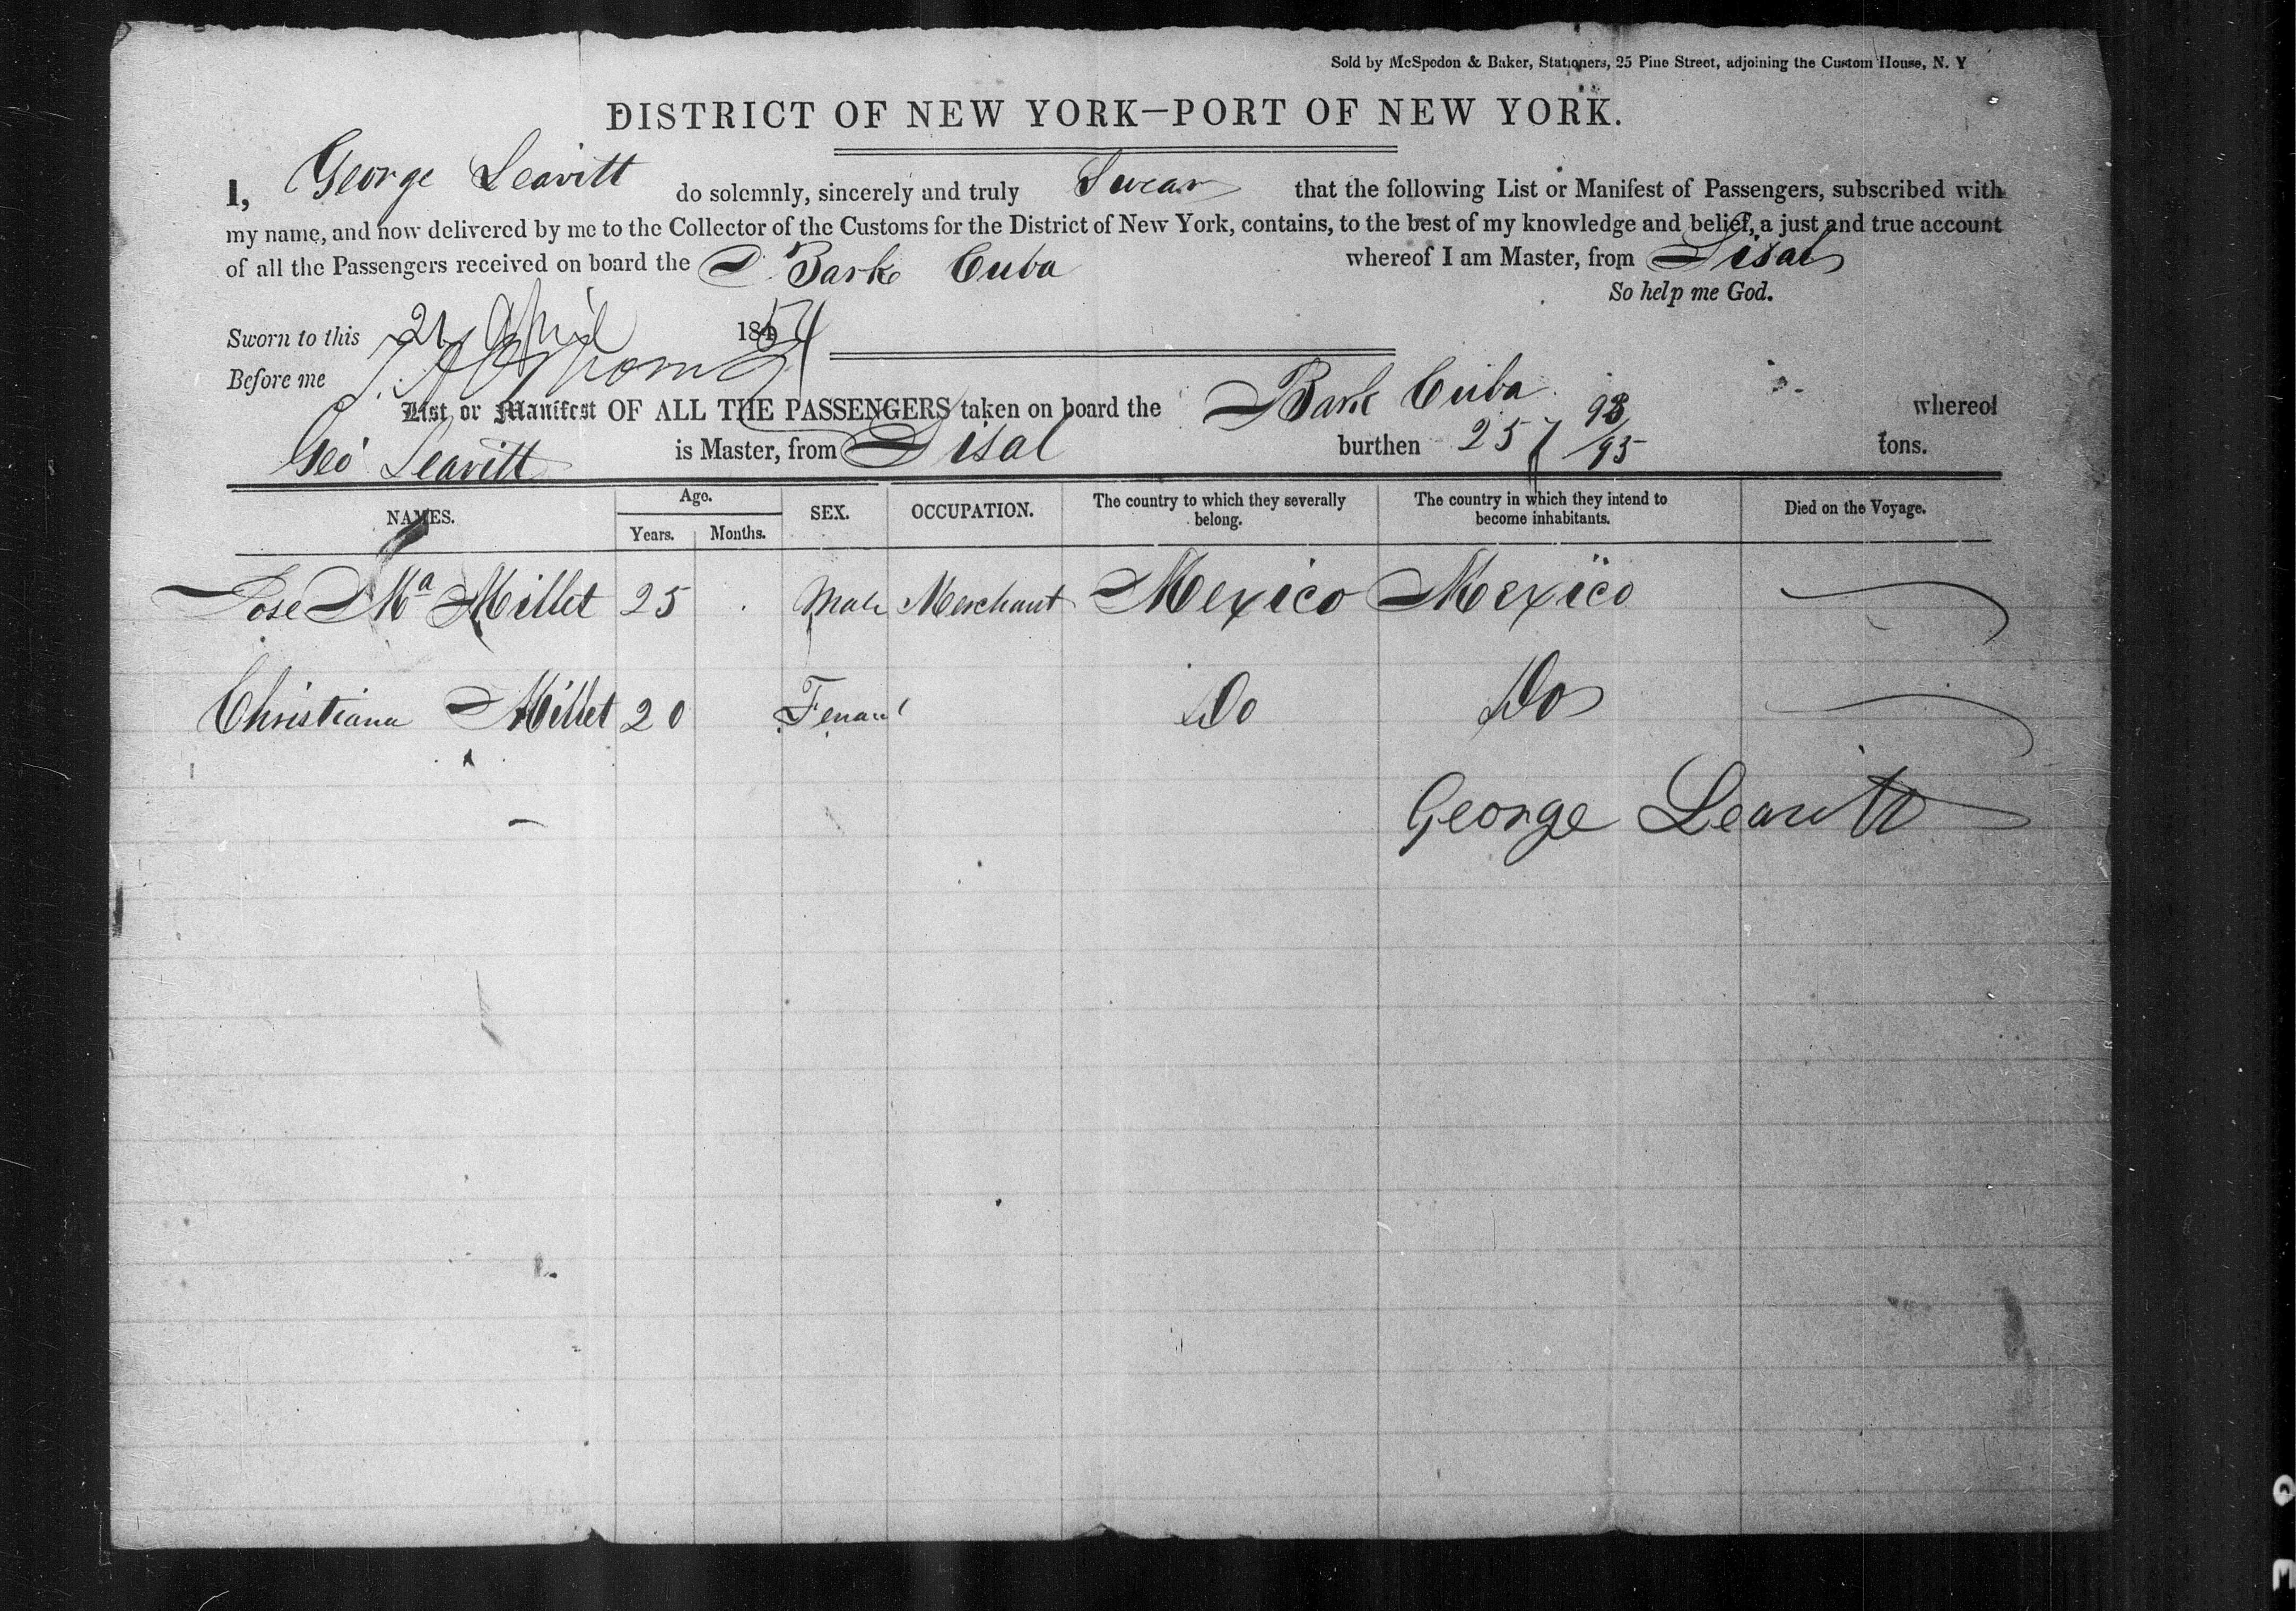 Sold by McSpedon & Baker, Stationers, 25 Pine Street, adjoining the Custom House, N. Y
DISTRICT OF NEW YORK—PORT OF NEW YORK.
I, George Leavitt do solemnly, sincerely and truly Swear that the following List or Manifest of Passengers, subscribed with
my name, and now delivered by me to the Collector of the Customs for the District of New York, contains, to the best of my knowledge and belief, a just and true account
of all the Passengers received on board the Bark Cuba whereof I am Master, from Sisal
So help me God.
Sworn to this 21 April 1851
Before me
List or Manifest OF ALL THE PASSENGERS taken on board the Bark Cuba whereof
Geo Leavitt is Master, from Sisal burthen 257 93/95 tons.
NAMES. Age. Years. Months. SEX. OCCUPATION. The country to which they severally belong. The country in which they intend to become inhabitants. Died on the Voyage.
Jose Ma Millet 25 Male Merchant Mexico Mexico
Christiana Millet 20 Female Do Do
George Leavitt